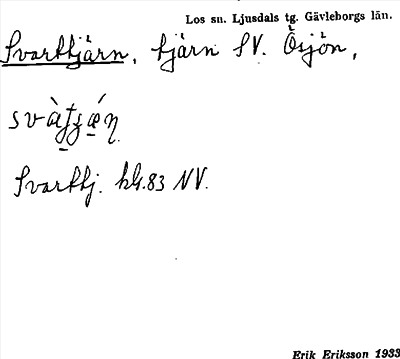 Los sn. Ljusdals tg. Gävleborgs län.
Svarttjärn, tjärn SV. Ösjön,
Svarttj. kbl.83 NV.
Erik Eriksson 1933